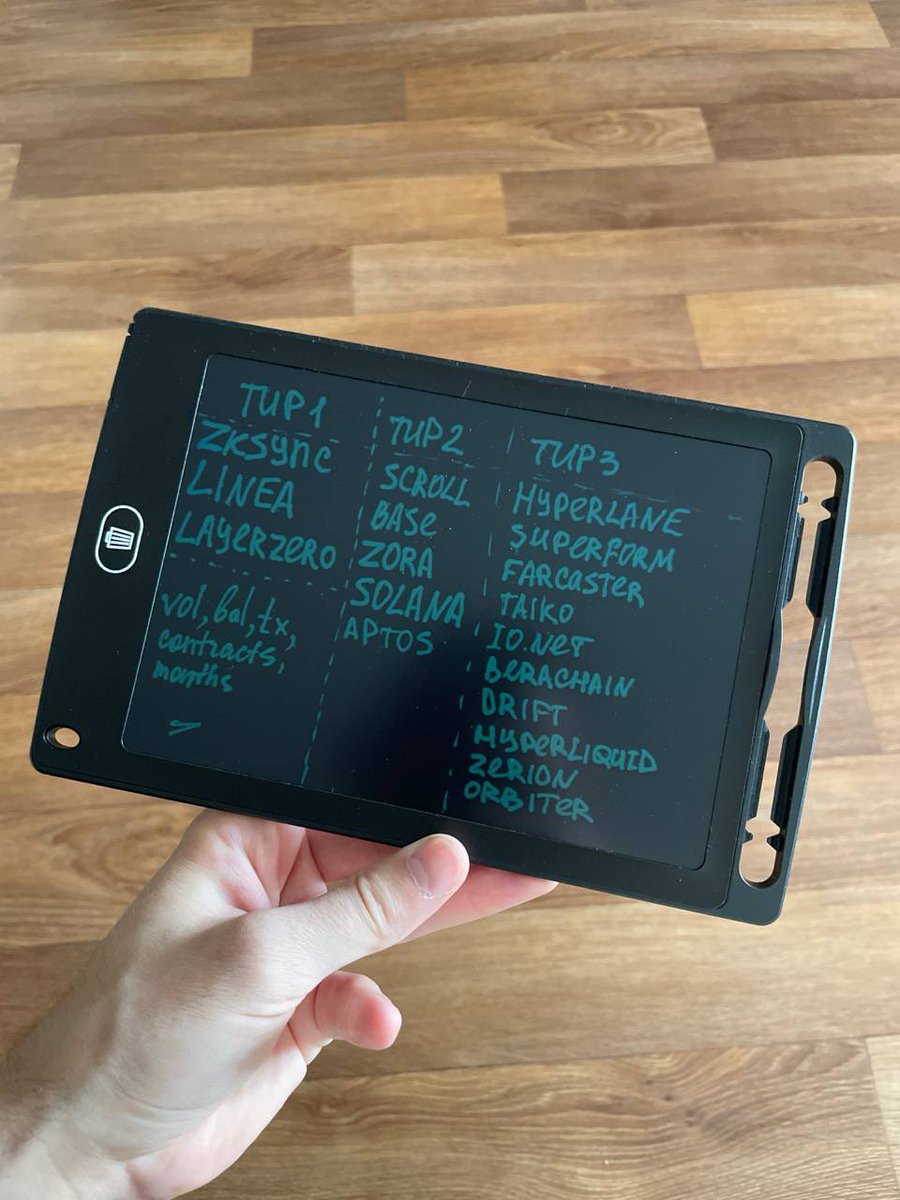 TUP1
ZKSync
LINEA
LAYERZERO
vol, bal, tx,
contracts,
months
TUP2
SCROLL
BASE
ZORA
SOLANA
APTOS
TUP3
HYPERLANE
SUPERFORM
FARCASTER
TAIKO
IO.NET
BERACHAIN
DRIFT
HYPERLIQUID
ZERION
ORBITER